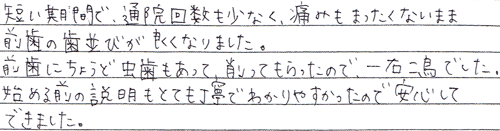 短い期間で、通院回数も少なく、痛みもまったくないまま
前歯の歯並びが良くなりました。
前歯にちょうど虫歯もあって、削ってもらったので、一石二鳥でした。
始める前の説明もとても丁寧でわかりやすかったので安心して
できました。